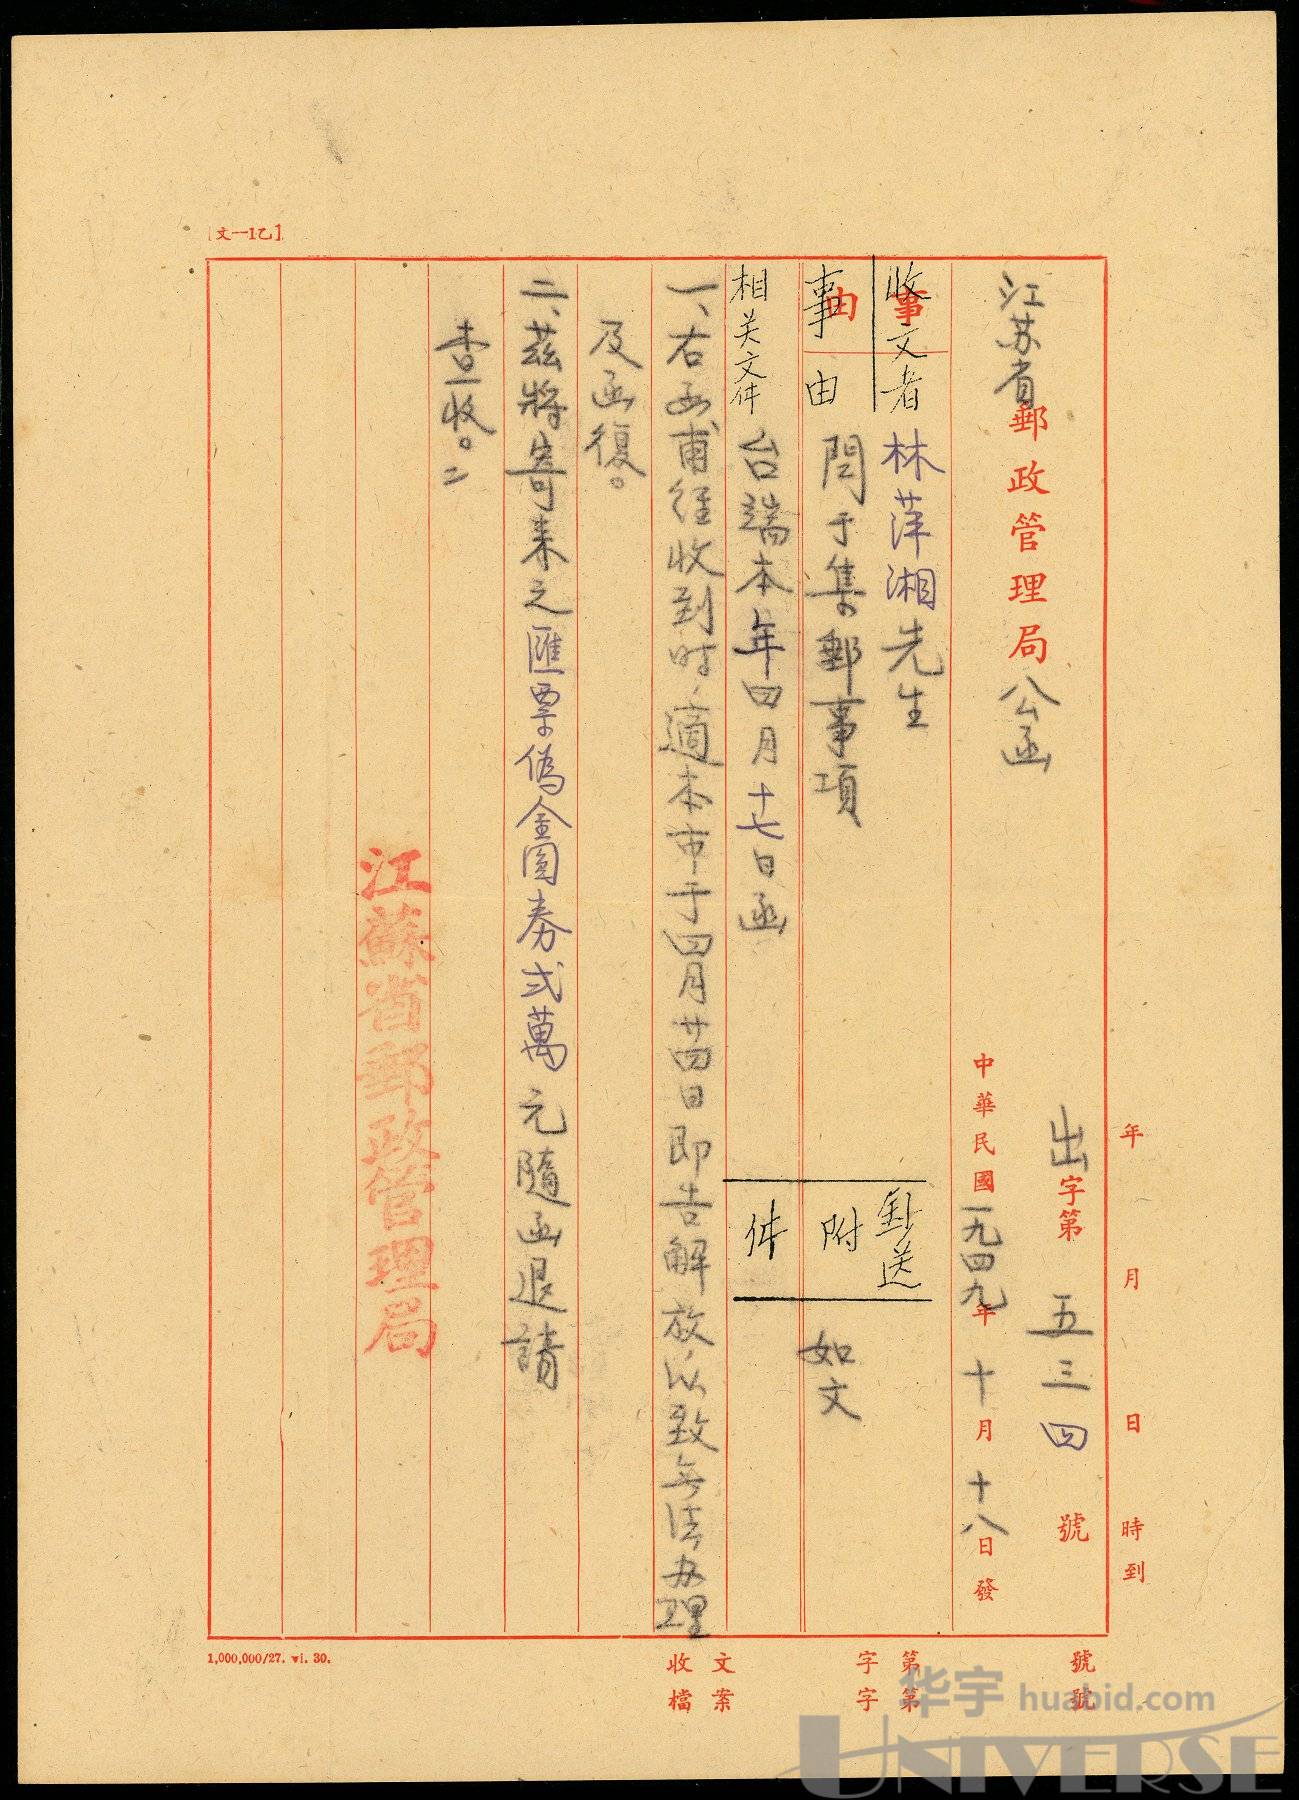 [文一1乙]
年 月 日 時到
江苏省郵政管理局公函
出字第五三四號
中華民國一九四九年十月十八日發
事由
收文者 林萍湘先生
鈔送
事由 関于集郵事項
附件 如文
相关文件 台端本年四月十七日函
一、右函甫経收到时,適本市于四月廿四日即告解放以致無法办理
及函復。
二、茲將寄来之匯票偽金圓券弍萬元隨函退請
查收。
江蘇省郵政管理局
1,000,000/27. vi. 30.
收文 字第 號
檔案 字第 號
华宇 huabid.com
UNIVERSE